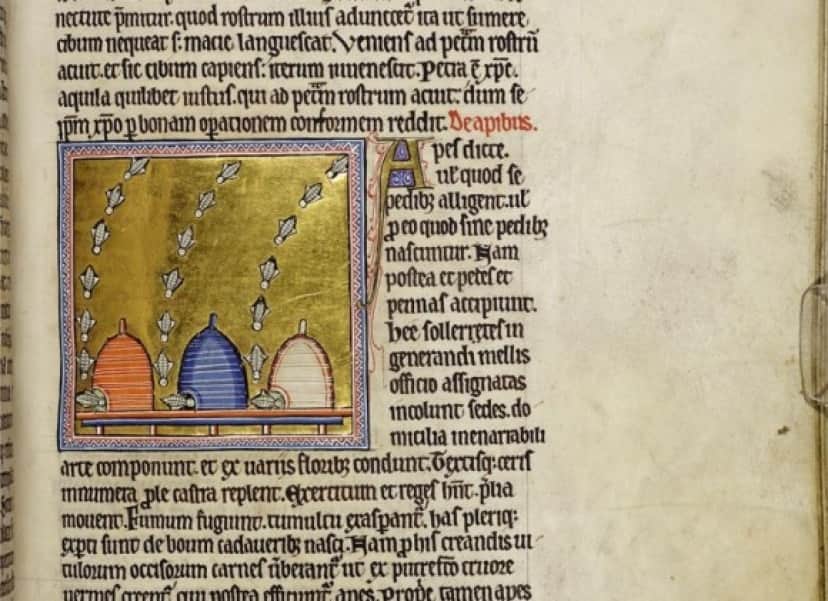 nectute p̄mitur. quod rostrum illius aduncet̄ ita ut sumere
cibum nequeat s: macie languescat. Veniens ad pet̄m rostrū
acuit. et sic cibum capiens: iterum iuuenescit. Petra ē xp̄c.
aquila quilibet iustus. qui ad pet̄m rostrum acuit: dum se
ip̄m xp̄o ꝑ bonam oꝑationem conformem reddit. De apibus.
Apes dicte.
ul' quod se
pedibꝫ alligent. ul'
ꝓ eo quod sine pedibꝫ
nascuntur. Nam
postea et pedes et
pennas accipiunt.
hee sollertes in
generandi mellis
officio assignatas
incolunt sedes. do
micilia inenarrabili
arte componunt. et ex uariis floribꝫ condunt. Textisqꝫ ceris
innumera ꝓle castra replent. Exercitum et reges hn̄t. p̄lia
mouent. Fumum fugiunt. tumultu exasꝑant̄. has pleriqꝫ
exꝑti sunt de boum cadaueribꝫ nasci. Nam ꝓ his creandis ui
tulorum occisorum carnes ūberant̄ ut ex putrefc̄o cruore
uermes creent̄ qui postea efficiunt̄ apes. tamen apes